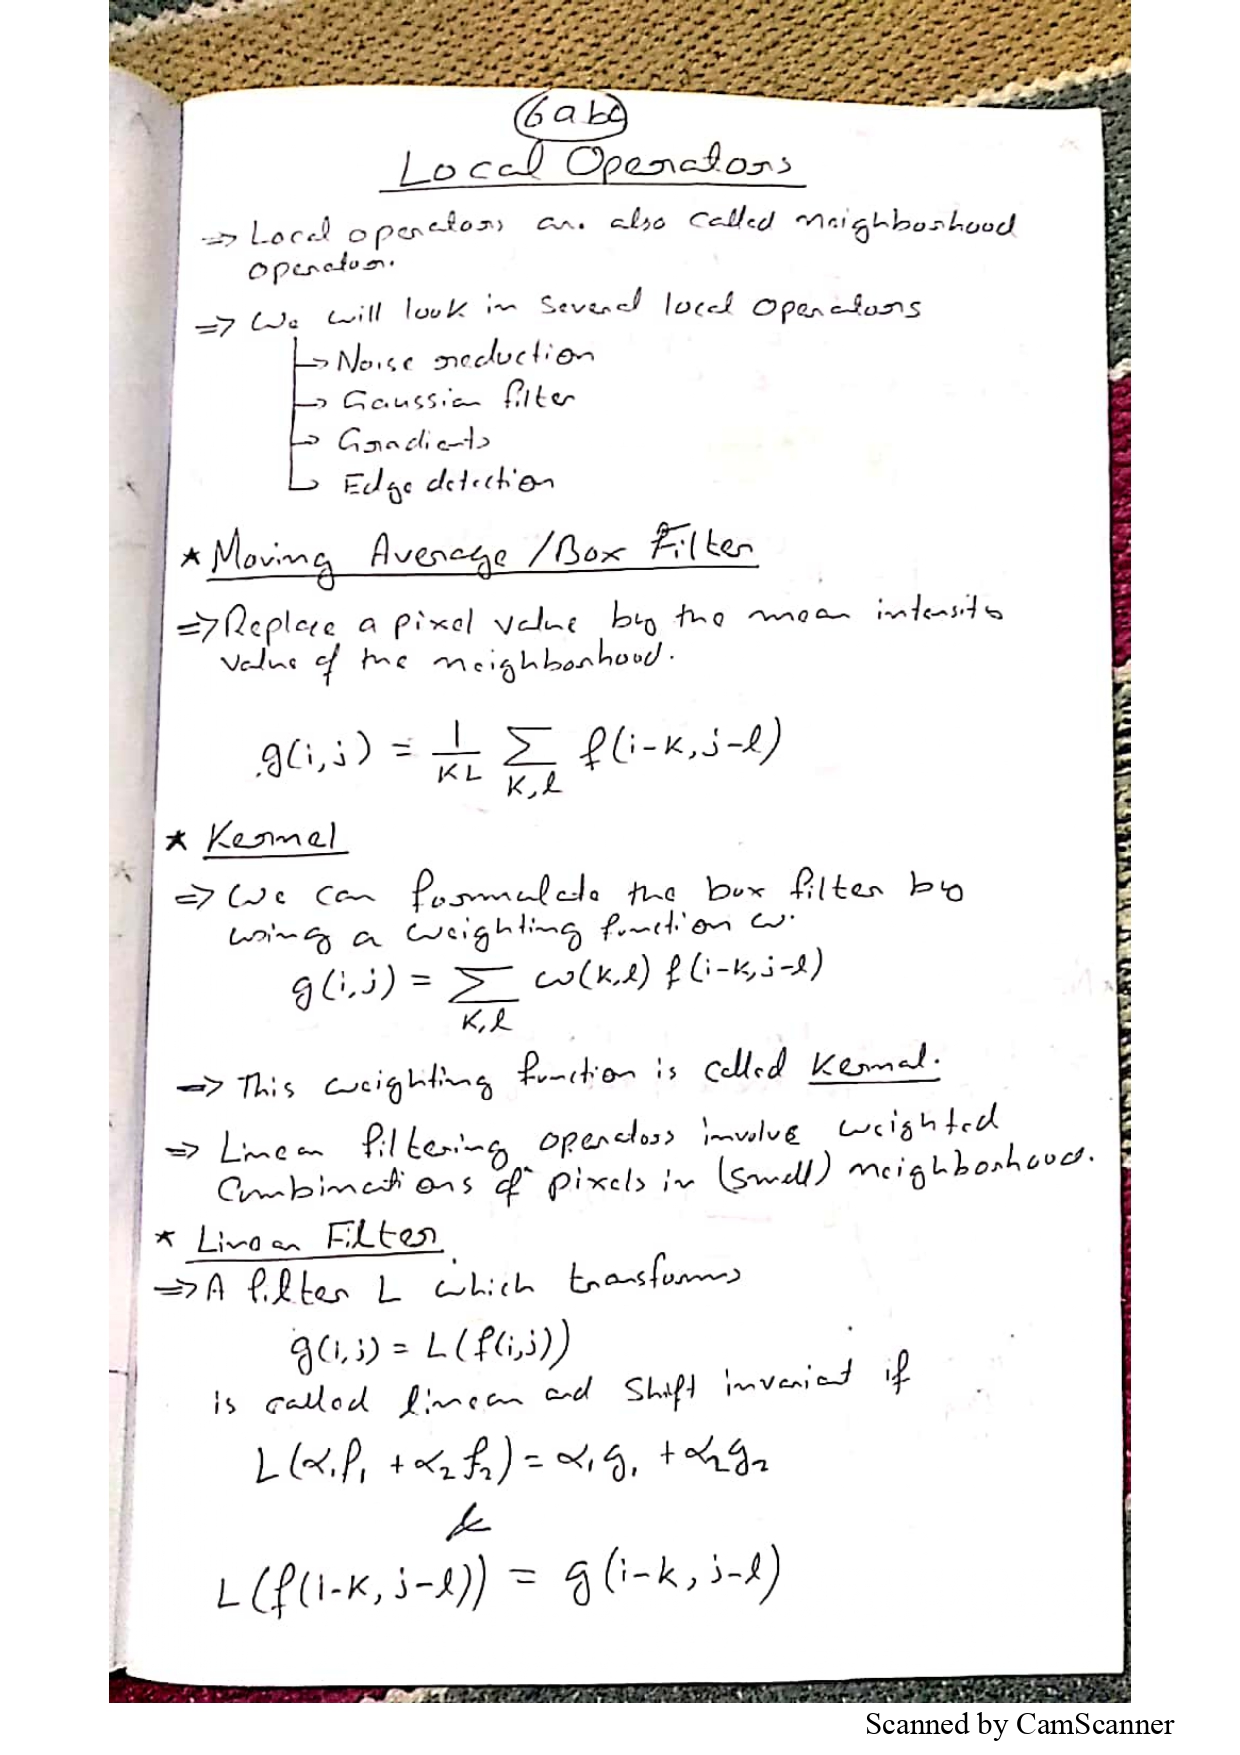 6abc
Local Operators
⇒ Local operators are also called neighborhood
operator.
⇒ We will look in several local operators
→ Noise reduction
→ Gaussian filter
→ Gradients
→ Edge detection
* Moving Average / Box Filter
⇒ Replace a pixel value by the mean intensity
value of the neighborhood.
g(i,j) = 1/KL Σ_{K,l} f(i-k, j-l)
* Kernel
⇒ We can formulate the box filter by
using a weighting function w.
g(i,j) = Σ_{K,l} w(k,l) f(i-k, j-l)
⇒ This weighting function is called Kernal.
⇒ Linear filtering operators involve weighted
Combinations of pixels in (small) neighborhood.
* Linear Filter
⇒ A filter L which transforms
g(i,j) = L(f(i,j))
is called linear and shift invariant if
L(α₁f₁ + α₂f₂) = α₁g₁ + α₂g₂
&
L(f(i-k, j-l)) = g(i-k, j-l)
Scanned by CamScanner